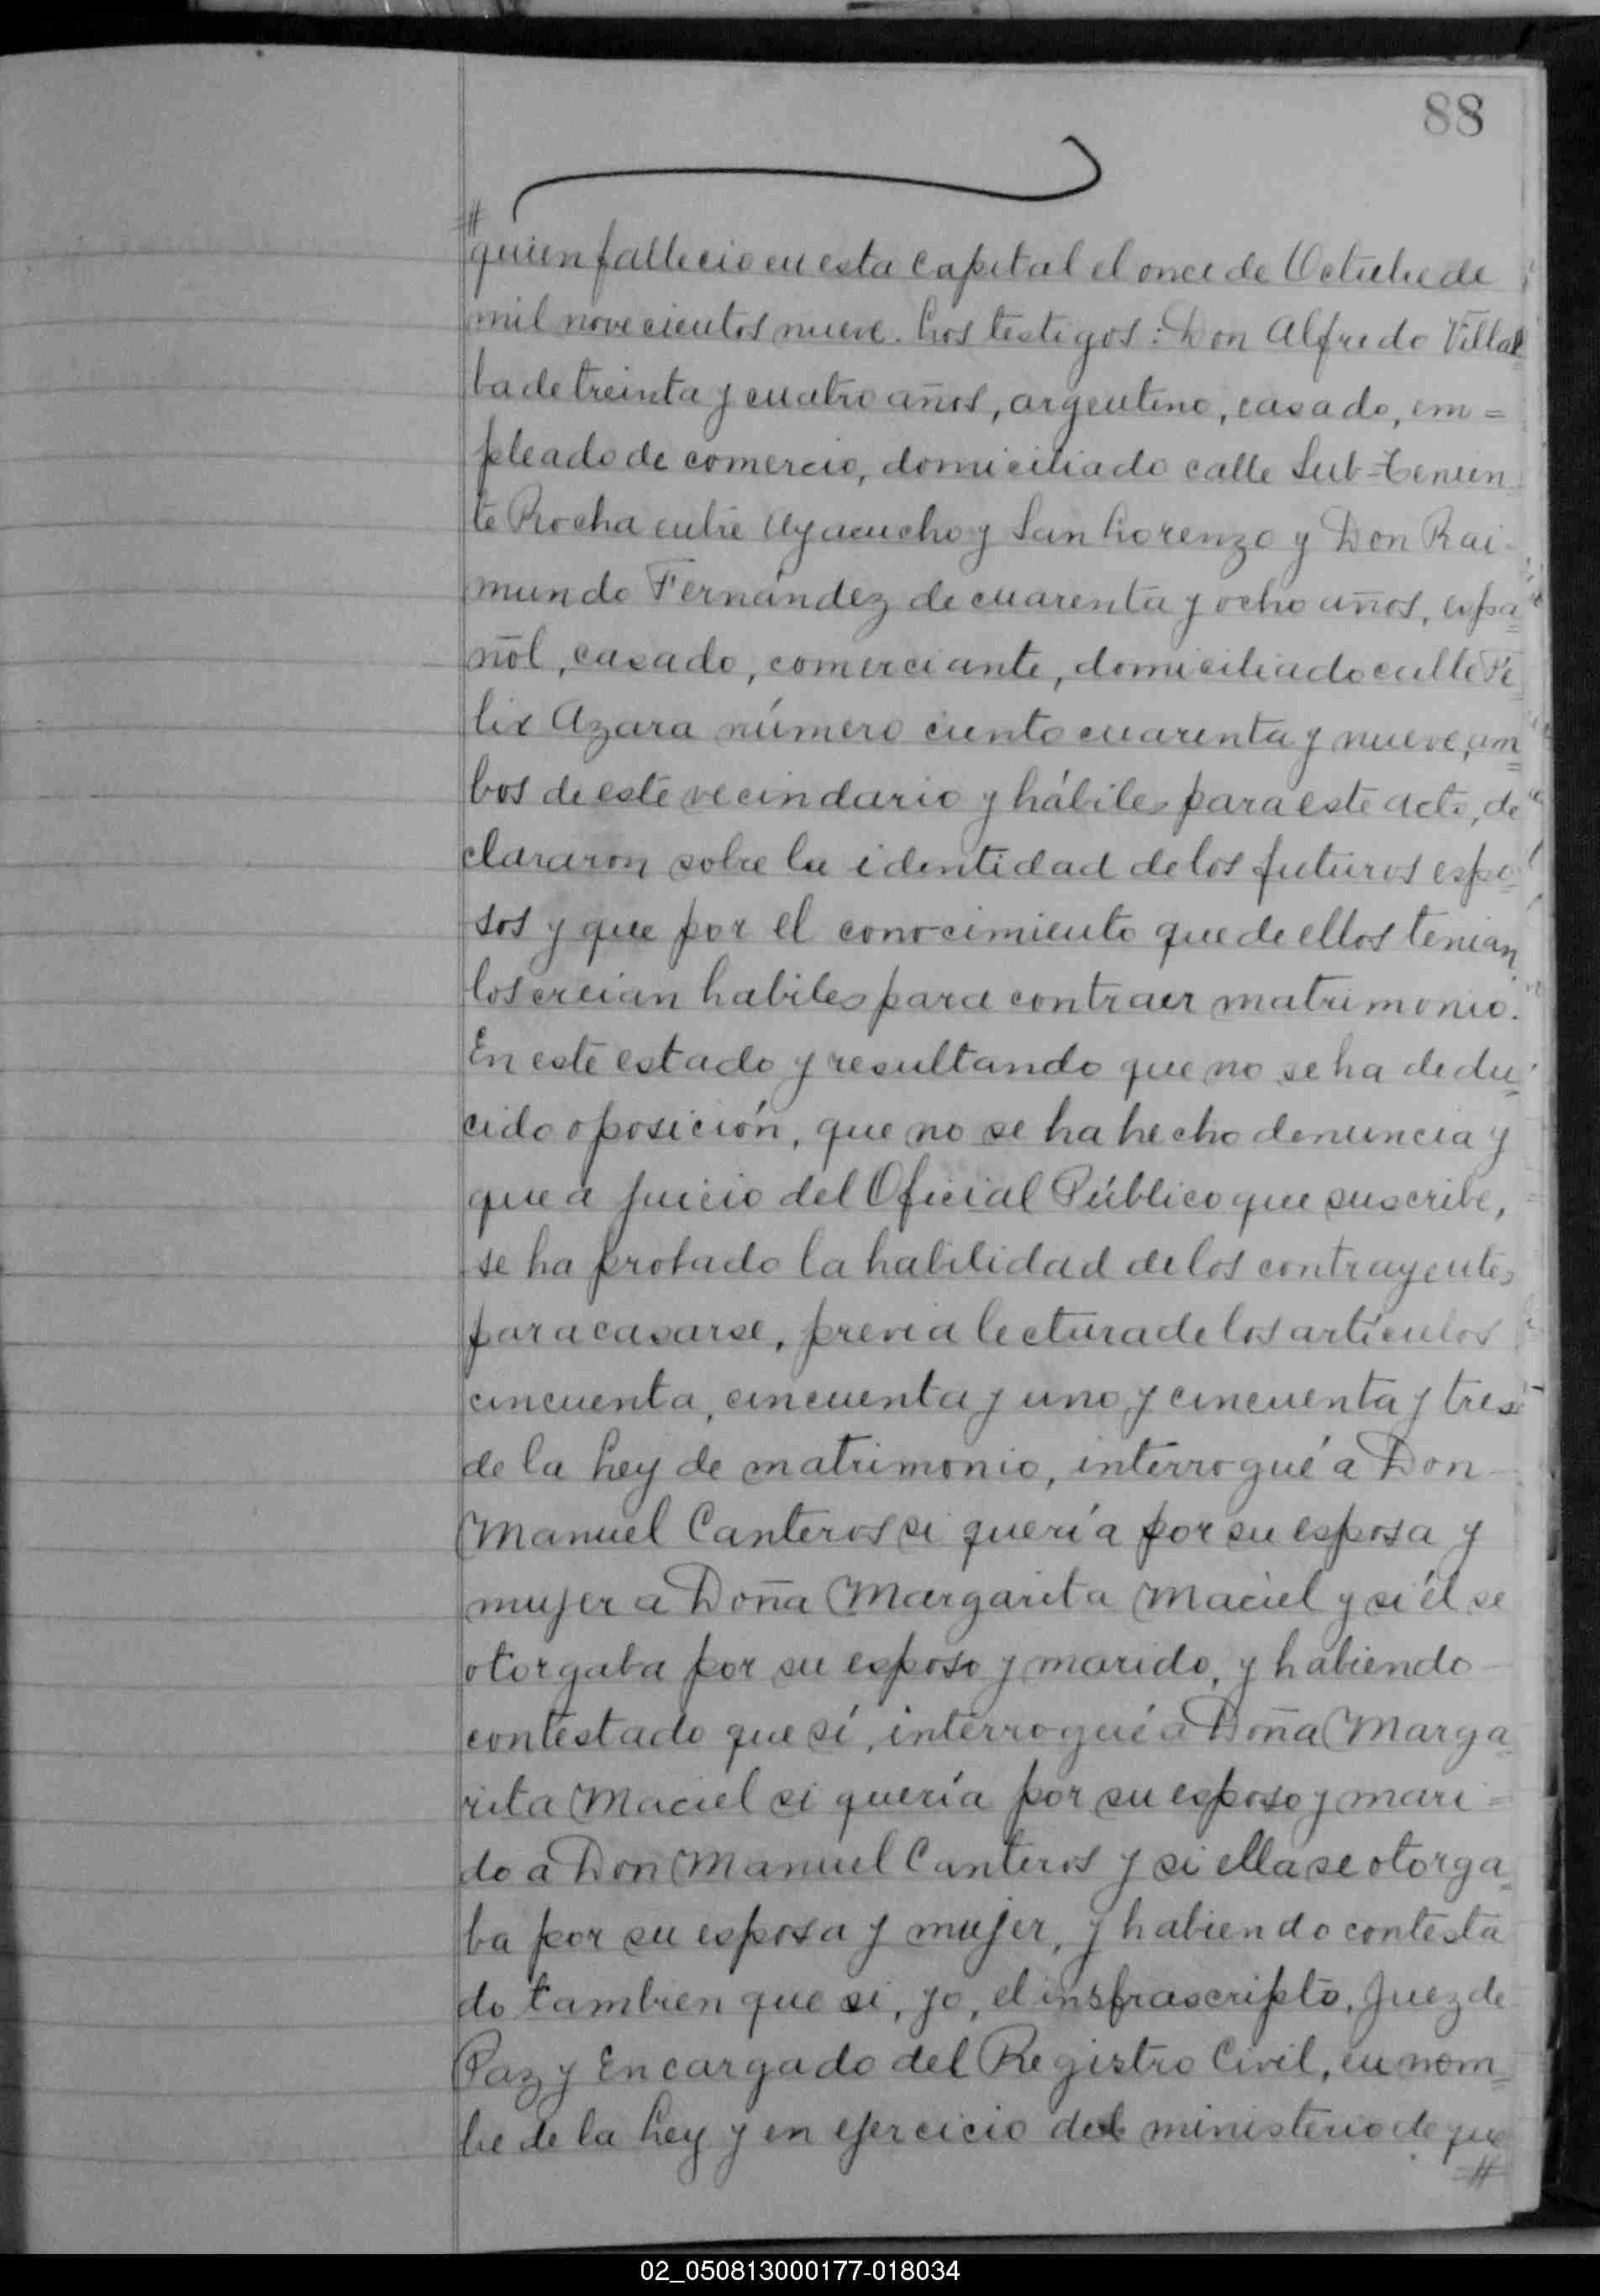 88
#
quien fallecio en esta Capital el once de Octubre de
mil novecientos nueve. Los testigos: Don Alfredo Villal
ba de treinta y cuatro años, argentino, casado, em=
pleado de comercio, domiciliado calle Sub-tenien
te Rocha entre Ayacucho y San Lorenzo y Don Rai-
mundo Fernández de cuarenta y ocho años, espa=
ñol, casado, comerciante, domiciliado calle Fe
lix Azara número ciento cuarenta y nueve, am=
bos de este vecindario y hábiles para este acto, de
clararon sobre la identidad de los futuros espo=
sos y que por el conocimiento que de ellos tenian
los creian habiles para contraer matrimonio.
En este estado y resultando que no se ha dedu=
cido oposición, que no se ha hecho denuncia y
que a juicio del Oficial Público que suscribe,
se ha probado la habilidad de los contrayentes
para casarse, previa lectura de los artículos
cincuenta, cincuenta y uno y cincuenta y tres
de la Ley de matrimonio, interrogué a Don
Manuel Canteros si quería por su esposa y
mujer a Doña Margarita Maciel y si él se
otorgaba por su esposo y marido, y habiendo
contestado que sí, interrogué a Doña Marga=
rita Maciel si quería por su esposo y mari=
do a Don Manuel Canteros y si ella se otorga=
ba por su esposa y mujer, y habiendo contesta
do tambien que si, yo, el insfrascripto, Juez de
Paz y Encargado del Registro Civil, en nom=
bre de la Ley y en ejercicio del ministerio de que
#
02_050813000177-018034